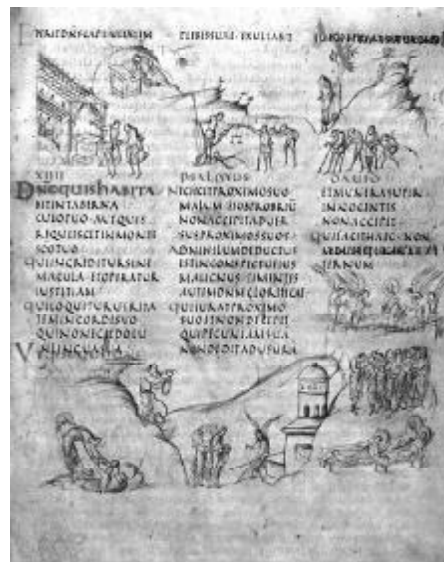 PLEBISSUAE EXULTABIT
XIIII
DNEQUISHABITA
BITINTABERNA
CULOTUO AUTQUIS
REQUIESCETINMONTE
SCOTUO
QUIINGREDITURSINE
MACULA ETOPERATUR
IUSTITIAM
QUILOQUITURUERITA
TEMINCORDESUO
QUINONEGITDOLU
PSALMUS
NECFECITPROXIMOSUO
MALUM ETOBPROBRIU
NONACCEPITADUER
SUSPROXIMOSSUOS
ADNIHILUMDEDUCTUS
ESTINCONSPECTUEIUS
MALIGNUS TIMENTES
AUTEMDNMGLORIFICAT
QUIIURATPROXIMO
SUOETNONDECEPIT
QUIPECUNIAMSUA
NONDEDITADUSURA
DAUID
ETMUNERASUPER
INNOCENTES
NONACCEPIT
QUIFACITHAEC NON
TERNUM